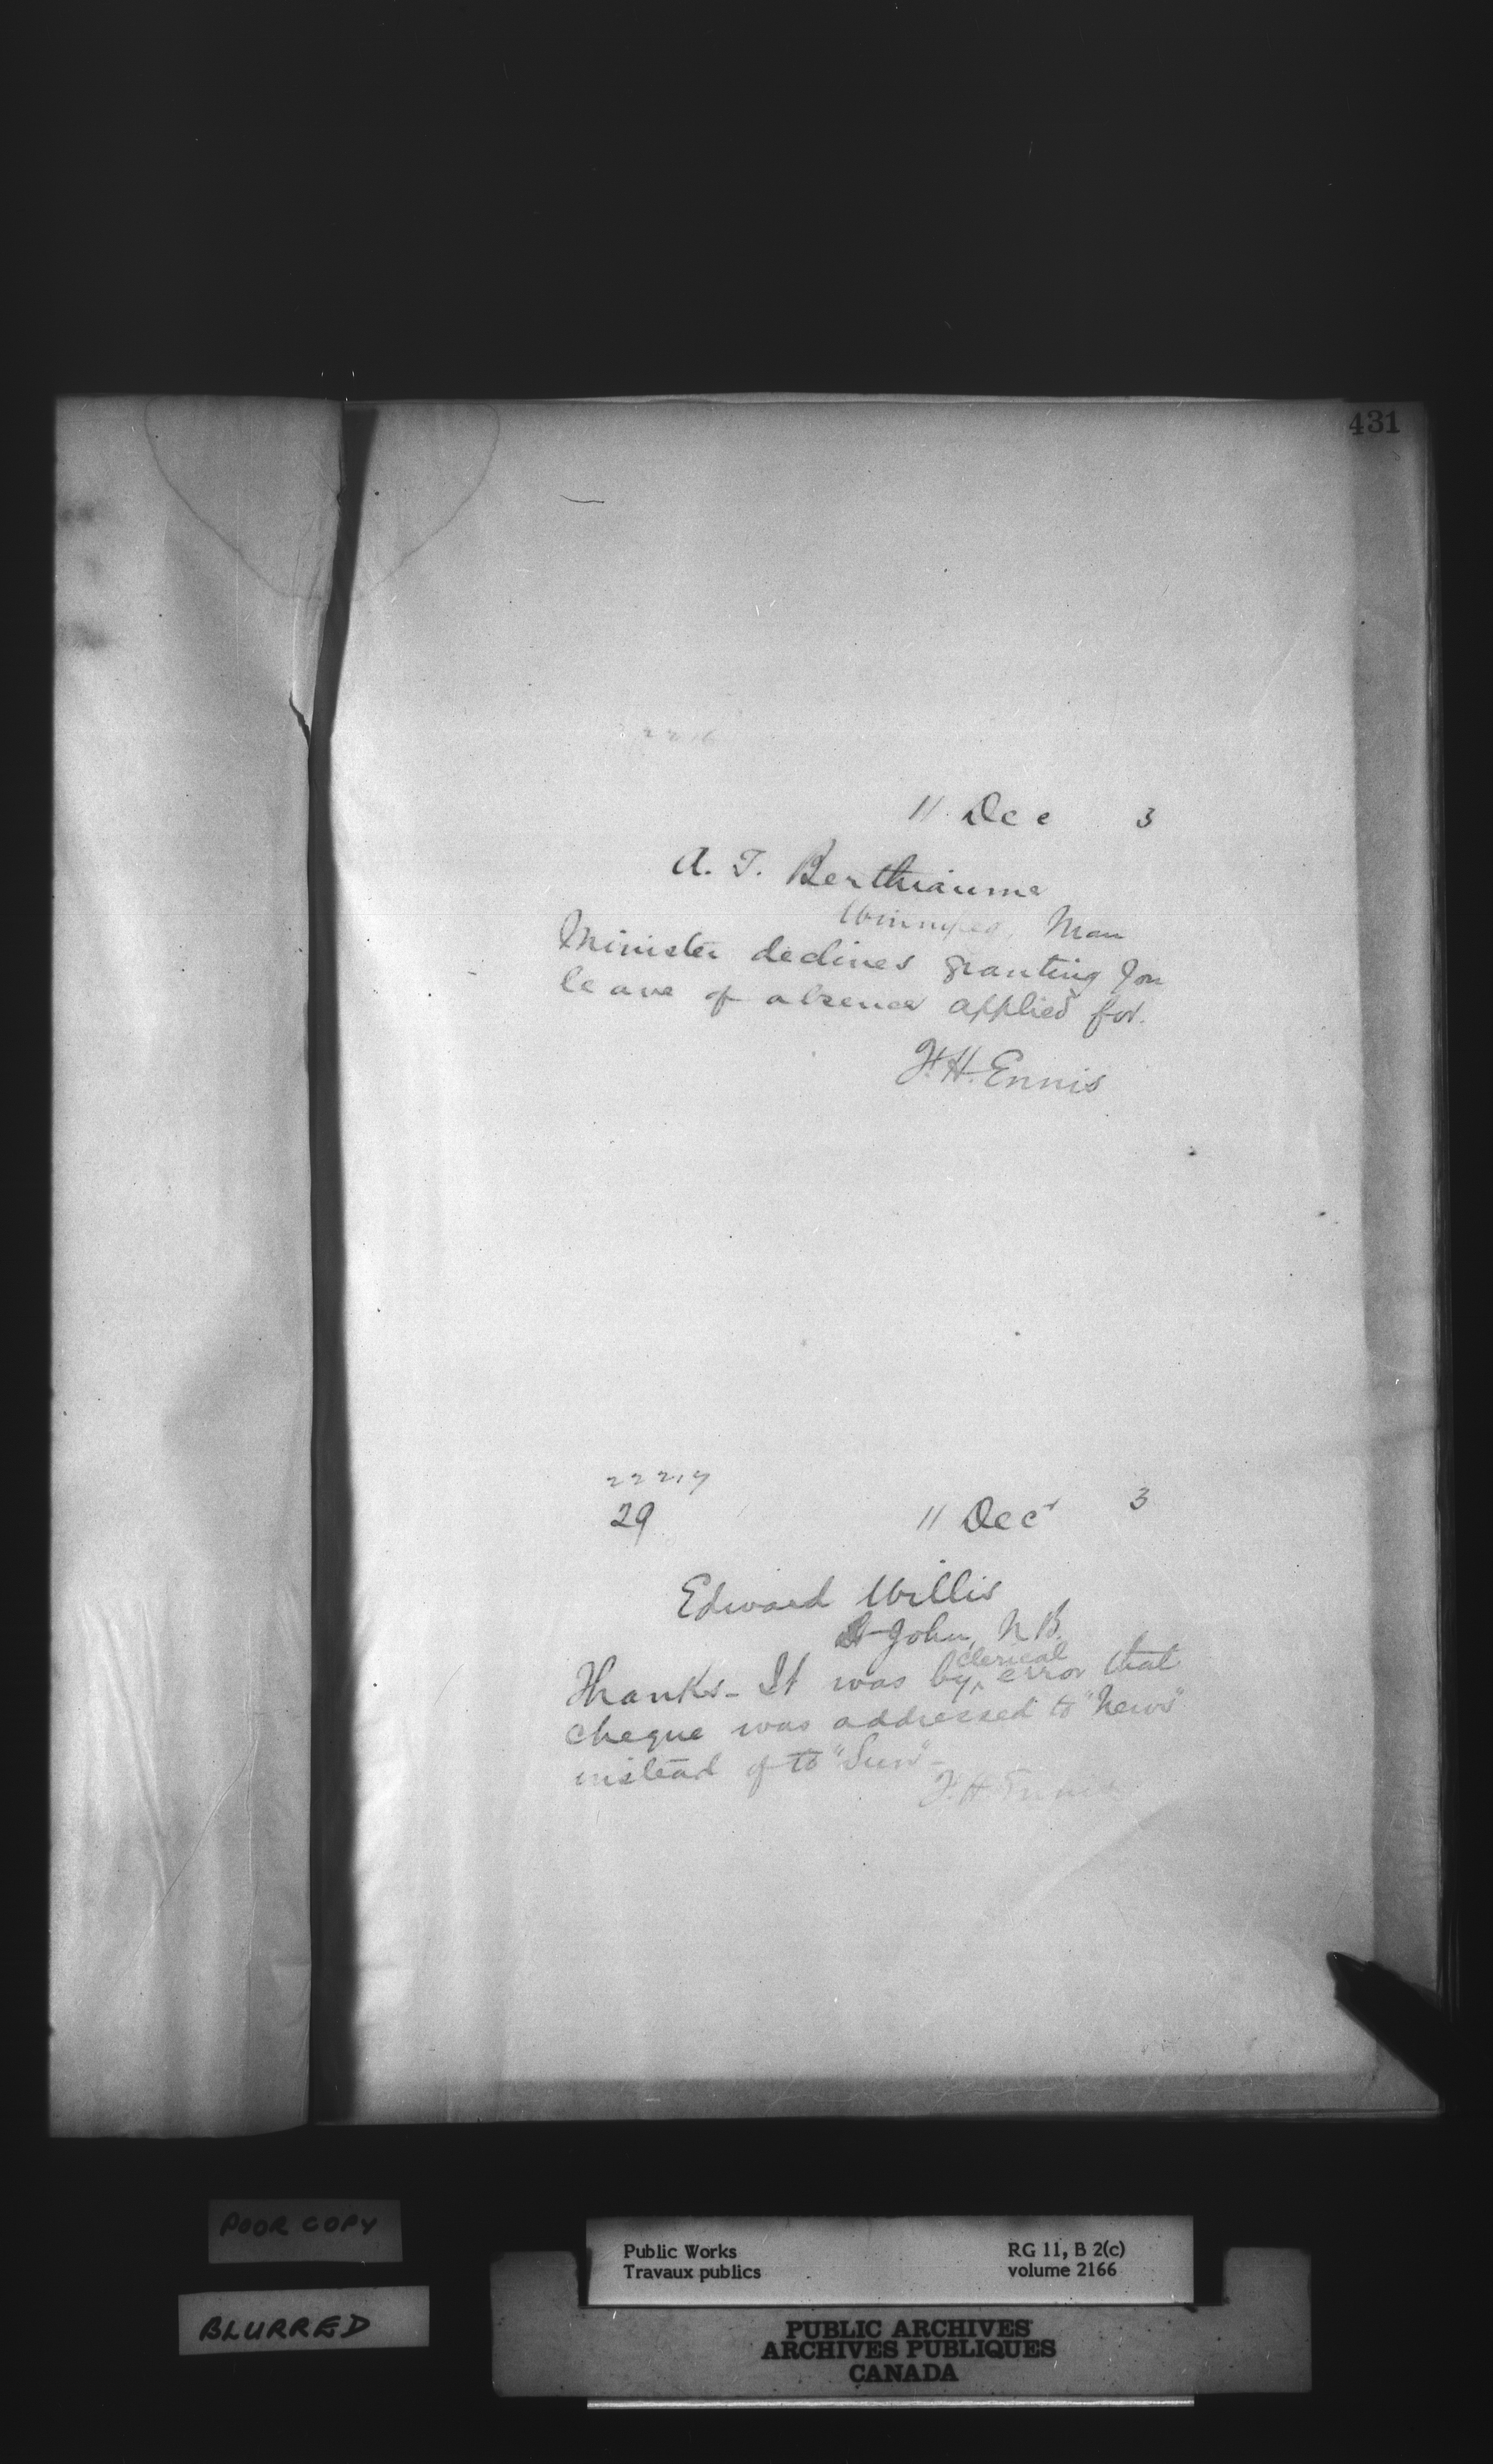 431
11 Dec 3
A. T. Berthiaume
Winnipeg, Man
Minister declines granting you
leave of absence applied for.
F. H. Ennis
22217
29 11 Decr 3
Edward Willis
St John, N.B.
Thanks - It was by clerical error that
cheque was addressed to "News"
instead of to "Sun" -
F. H. Ennis
POOR COPY
BLURRED
Public Works RG 11, B 2(c)
Travaux publics volume 2166
PUBLIC ARCHIVES
ARCHIVES PUBLIQUES
CANADA